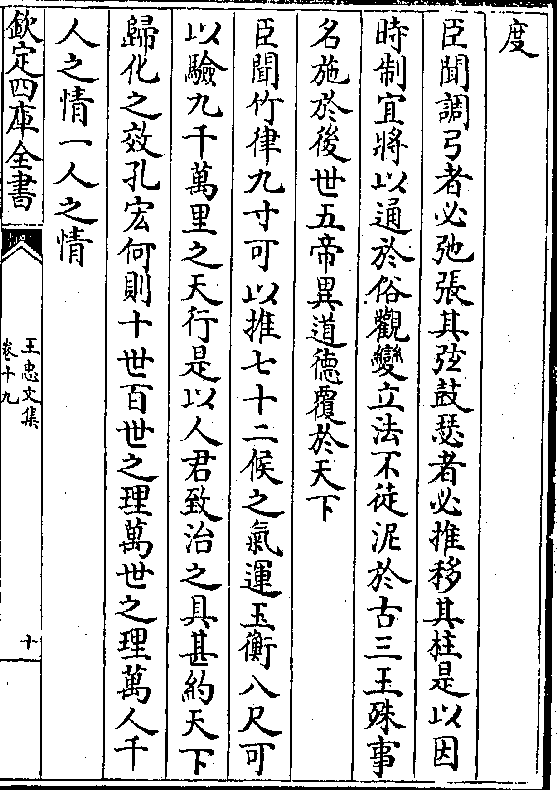 度
臣聞調弓者必弛張其弦鼓瑟者必推移其柱是以因
時制宜將以通於俗觀變立法不徒泥於古三王殊事
名施於後世五帝異道德覆於天下
臣聞竹律九寸可以推七十二候之氣運玉衡八尺可
以驗九千萬里之天行是以人君致治之具甚約天下
歸化之效孔宏何則十世百世之理萬世之理萬人千
人之情一人之情
欽定四庫全書
王忠文集
卷十九
十